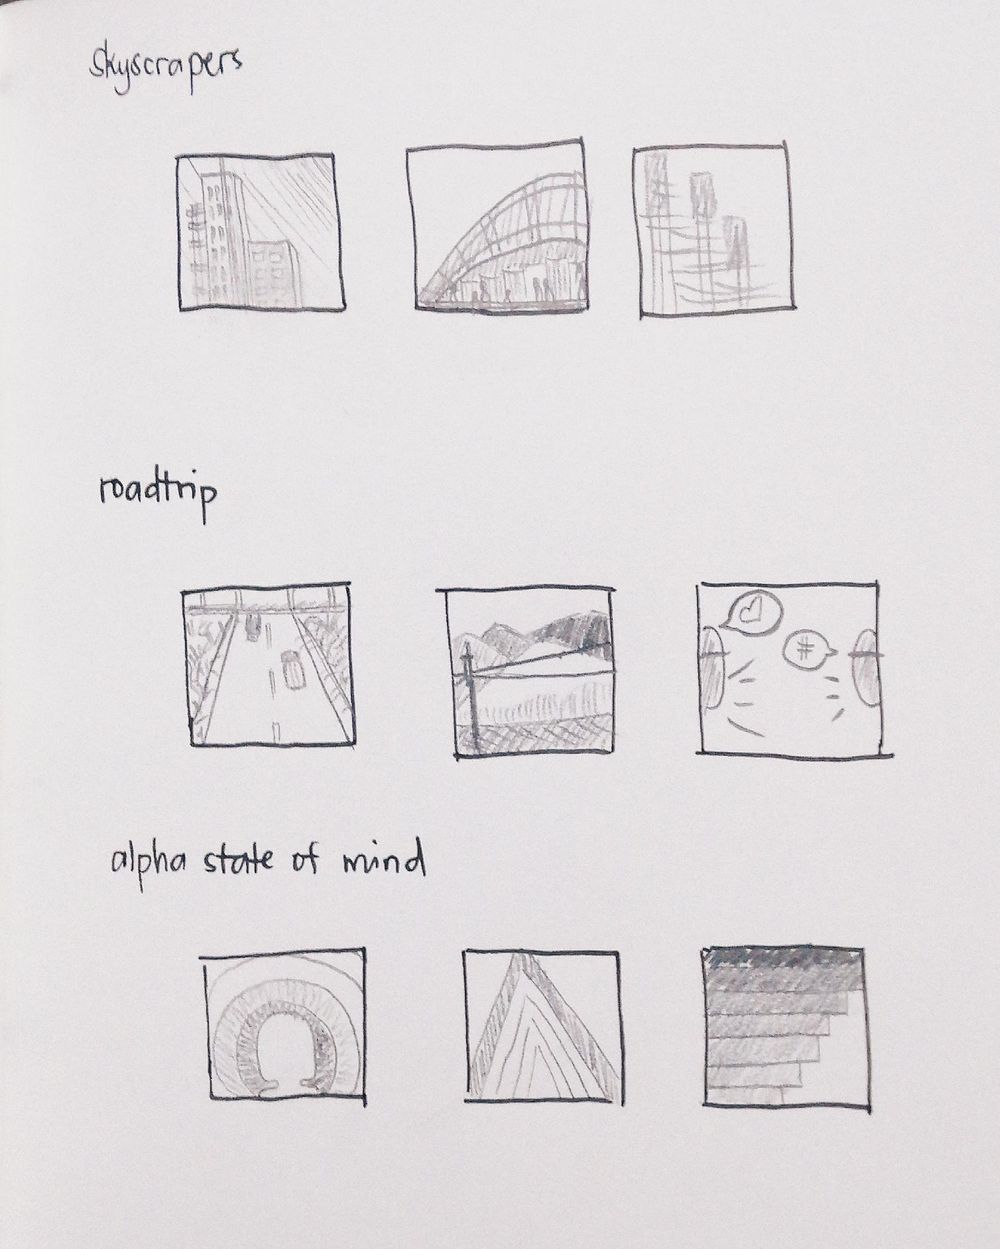 skyscrapers
roadtrip
#
alpha state of mind